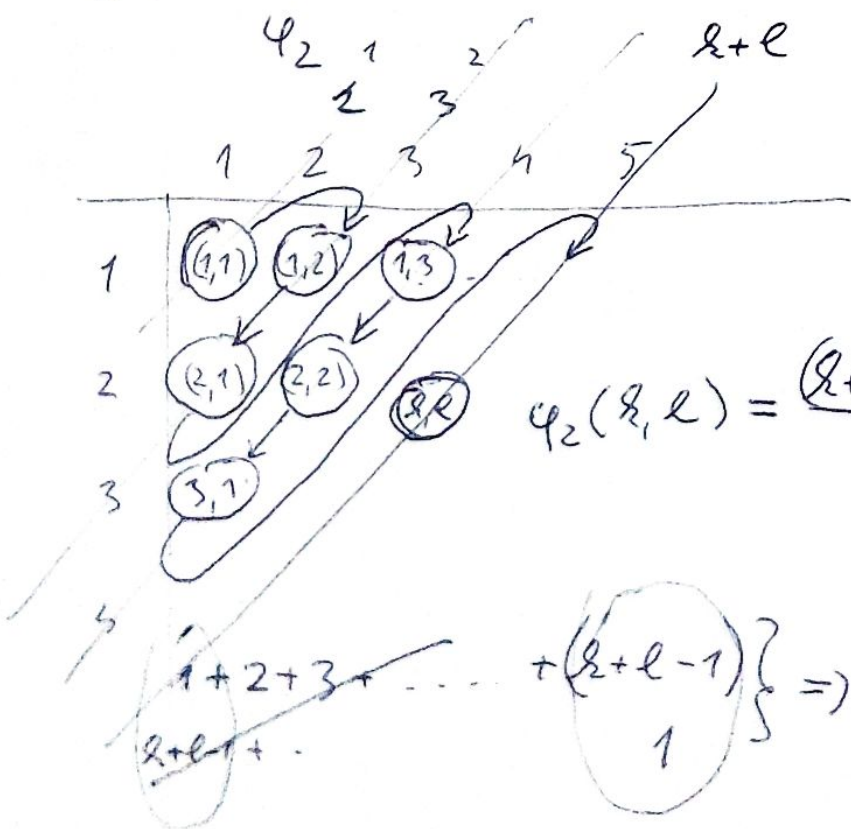 φ₂ 1 2 k+l
2 3
1 2 3 4 5
1 (1,1) (1,2) (1,3
2 (2,1) (2,2) k,l φ₂(k,l) = (k+
3 3,1
4
1+2+3+ ..... +(k+l-1)} =>
k+l-1+ . 1